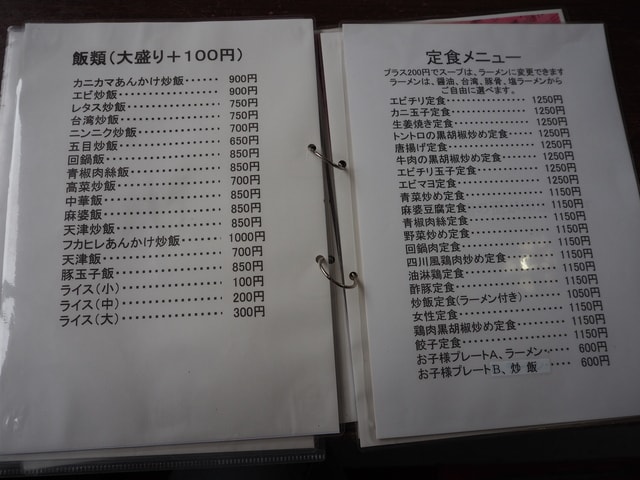 飯類(大盛り+100円)
カニカマあんかけ炒飯‥‥‥900円
エビ炒飯‥‥‥‥‥‥‥‥900円
レタス炒飯‥‥‥‥‥‥‥750円
台湾炒飯‥‥‥‥‥‥‥‥750円
ニンニク炒飯‥‥‥‥‥‥700円
五目炒飯‥‥‥‥‥‥‥‥650円
回鍋飯‥‥‥‥‥‥‥‥‥850円
青椒肉絲飯‥‥‥‥‥‥‥850円
高菜炒飯‥‥‥‥‥‥‥‥700円
中華飯‥‥‥‥‥‥‥‥‥850円
麻婆飯‥‥‥‥‥‥‥‥‥850円
天津炒飯‥‥‥‥‥‥‥‥850円
フカヒレあんかけ炒飯‥‥‥1000円
天津飯‥‥‥‥‥‥‥‥‥700円
豚玉子飯‥‥‥‥‥‥‥‥850円
ライス(小)‥‥‥‥‥‥‥100円
ライス(中)‥‥‥‥‥‥‥200円
ライス(大)‥‥‥‥‥‥‥300円
定食メニュー
プラス200円でスープは、ラーメンに変更できます
ラーメンは、醤油、台湾、豚骨、塩ラーメンから
ご自由に選べます。
エビチリ定食‥‥‥‥‥‥1250円
カニ玉子定食‥‥‥‥‥‥1250円
生姜焼き定食‥‥‥‥‥‥1250円
トントロの黒胡椒炒め定食‥‥1250円
唐揚げ定食‥‥‥‥‥‥‥1250円
牛肉の黒胡椒炒め定食‥‥‥1250円
エビチリ玉子定食‥‥‥‥1250円
エビマヨ定食‥‥‥‥‥‥1250円
青菜炒め定食‥‥‥‥‥‥1150円
麻婆豆腐定食‥‥‥‥‥‥1150円
青椒肉絲定食‥‥‥‥‥‥1150円
野菜炒め定食‥‥‥‥‥‥1150円
回鍋肉定食‥‥‥‥‥‥‥1150円
四川風鶏肉炒め定食‥‥‥1150円
油淋鶏定食‥‥‥‥‥‥‥1150円
酢豚定食‥‥‥‥‥‥‥‥1150円
炒飯定食(ラーメン付き)‥‥1050円
女性定食‥‥‥‥‥‥‥‥1150円
鶏肉黒胡椒炒め定食‥‥‥1150円
餃子定食‥‥‥‥‥‥‥‥1150円
お子様プレートA、ラーメン‥‥600円
お子様プレートB、炒飯‥‥600円